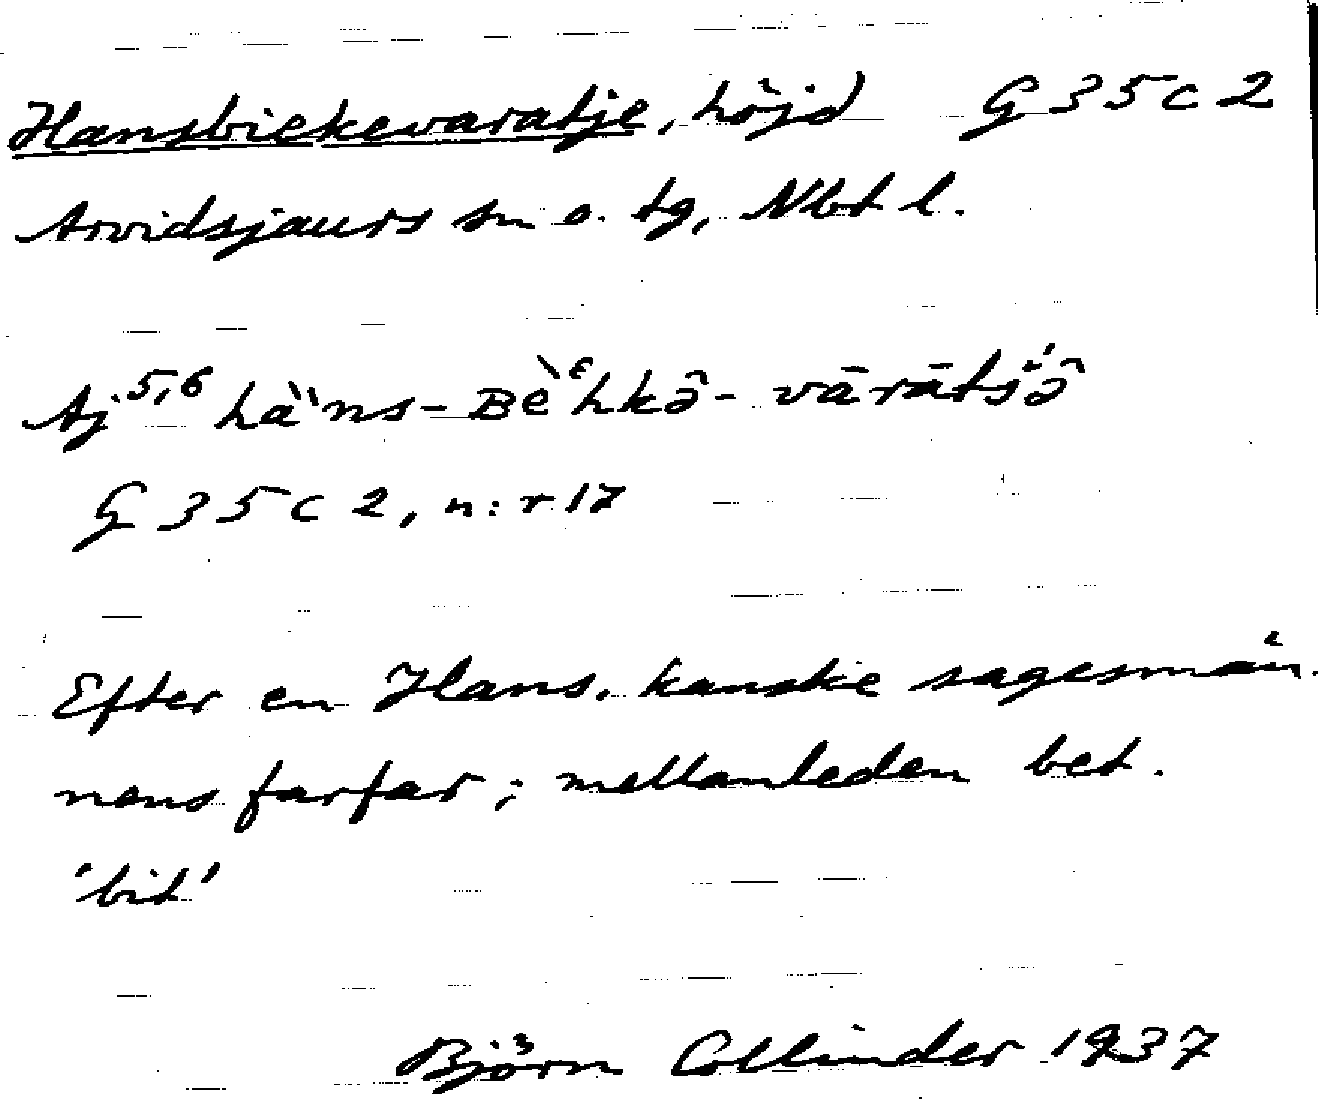 Hansbiekevaratje, höjd G 35 c 2
Arvidsjaurs sn o. tg, Nbt l.
Aj 5,6 hàˋns-Bè͑hkə̑- vārātśə̑
G 35 c 2, n:r 17
Efter en Hans, kanske sagesmän-
nens farfar; mellanleden bet.
'bit'
Björn Collinder 1937